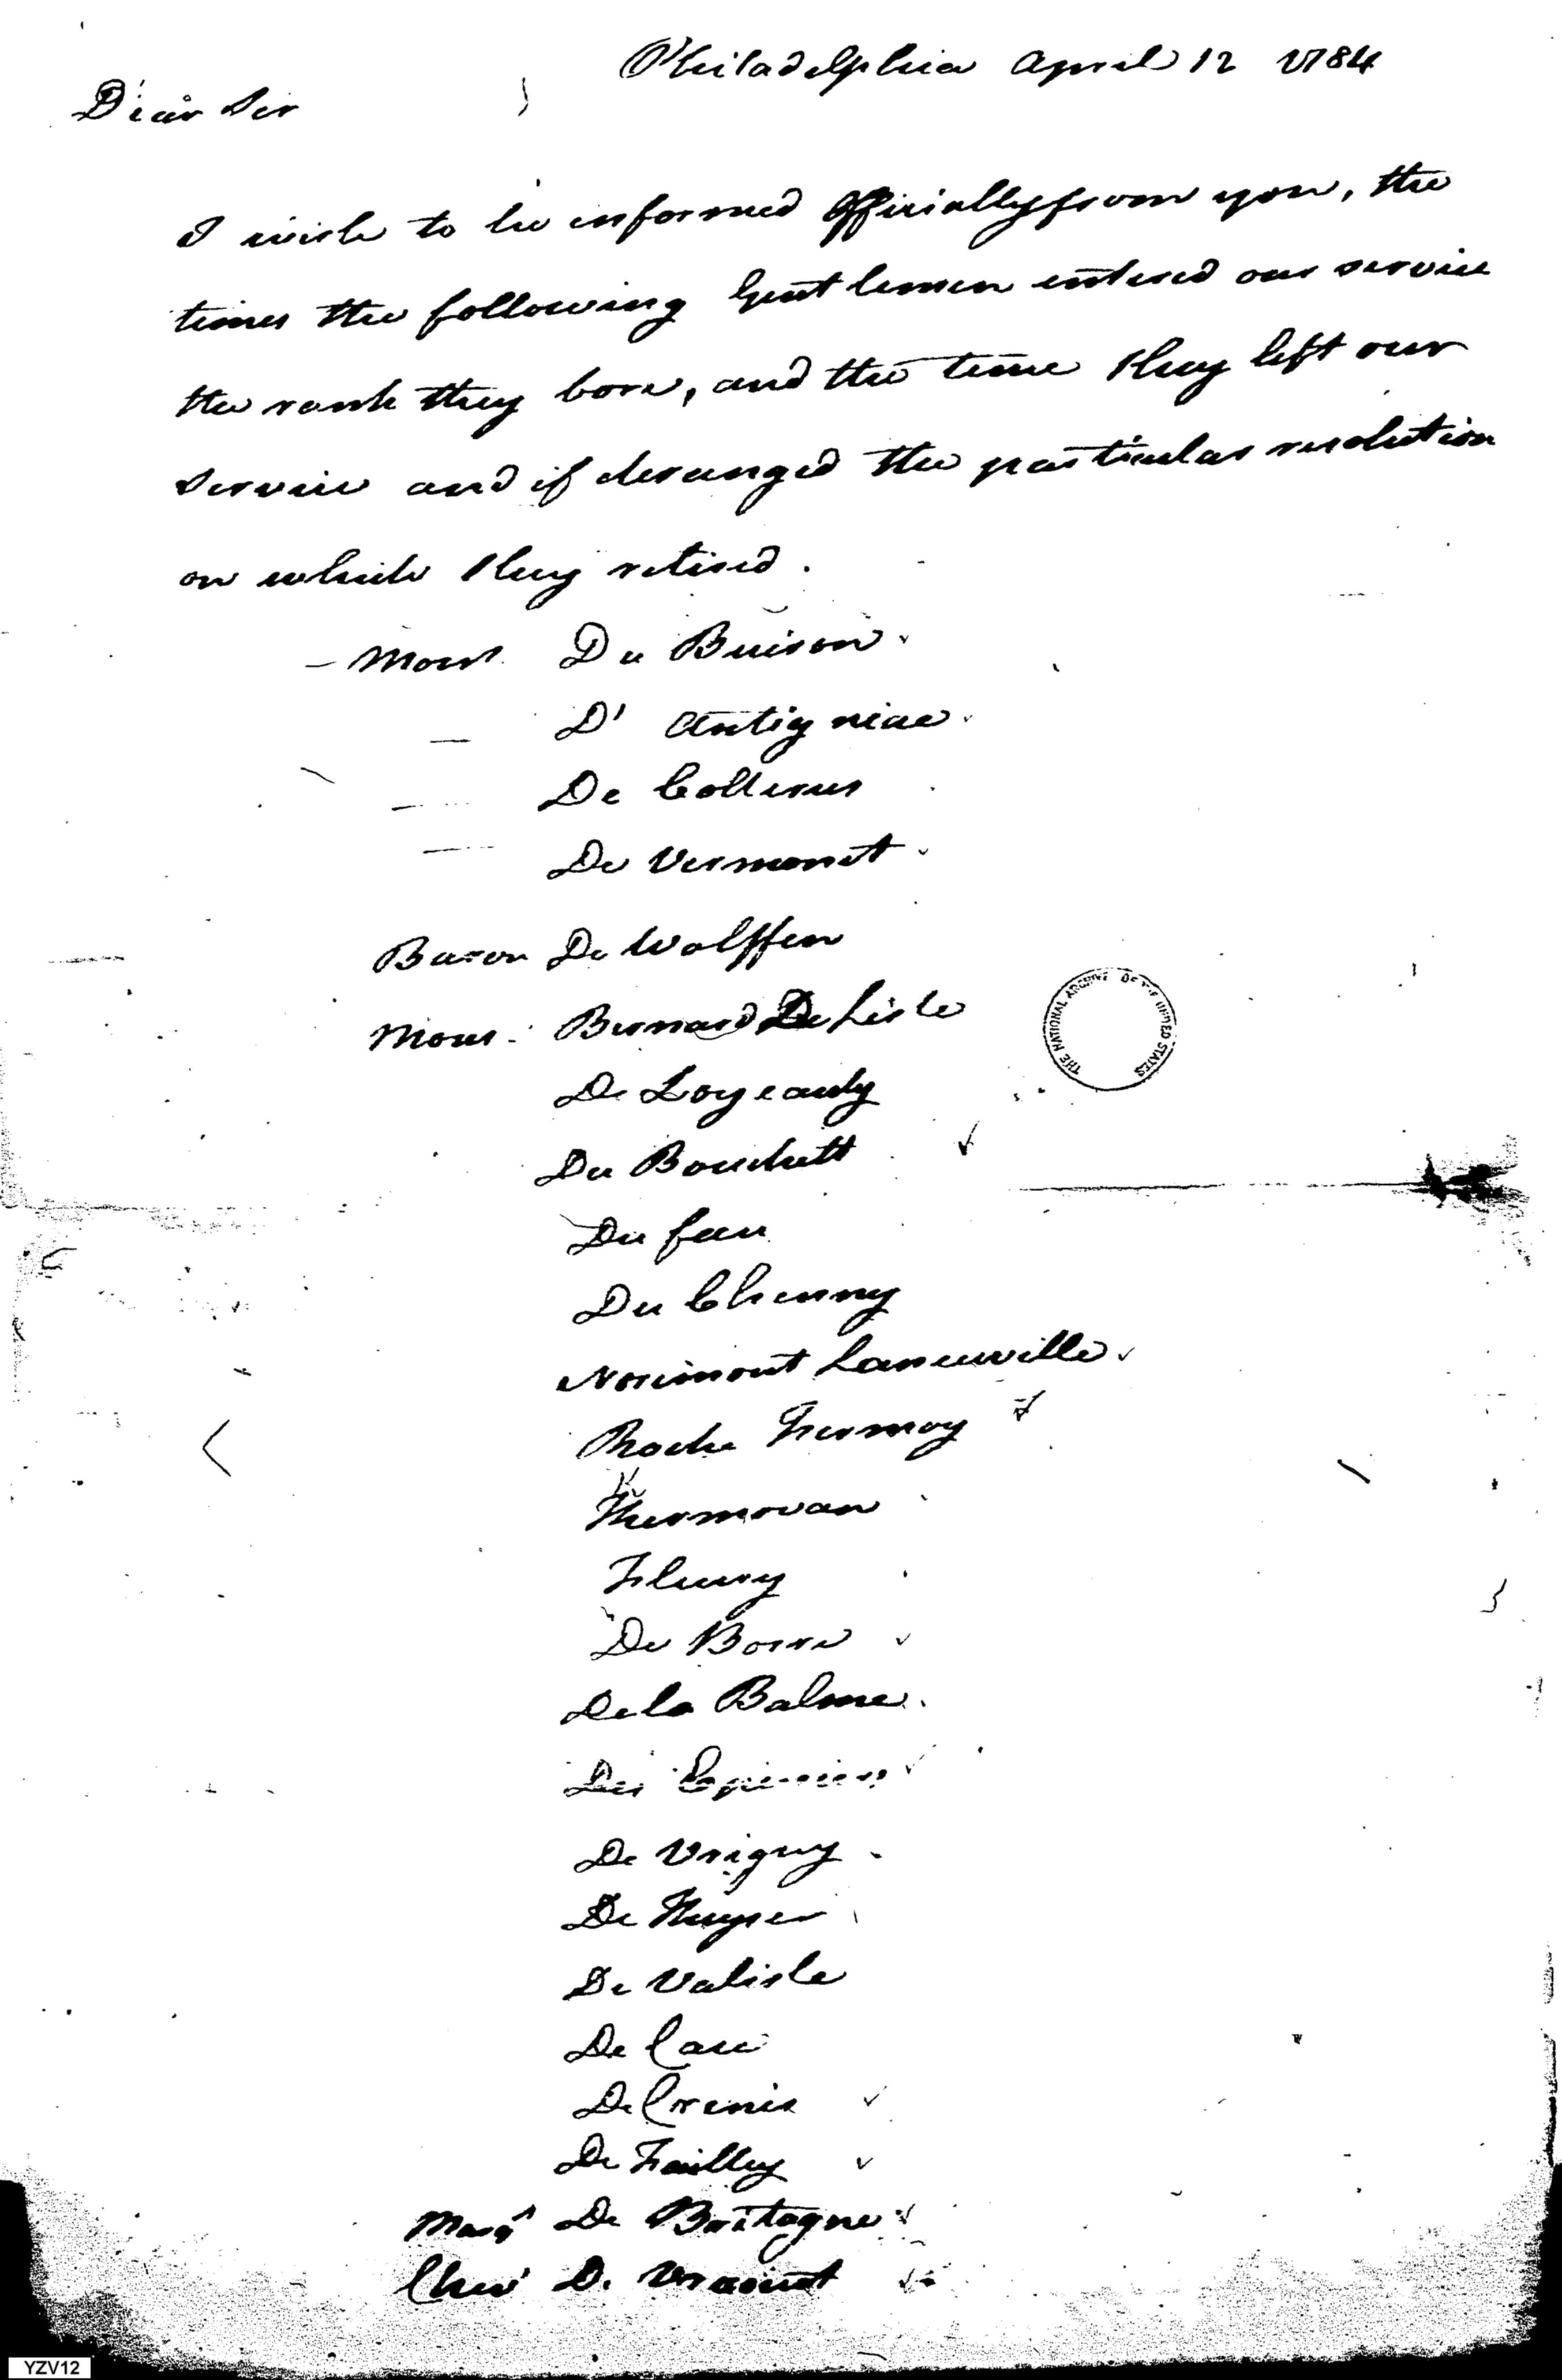 Philadelphia April 12 1784
Dear Sir
I wish to be informed Officially from you, the
times the following Gentlemen entered our service
the rank they bore, and the time they left our
service and if deranged the particular resolution
on which they retired.
Mons. Du Buison
D' Antigniac
De Colterus
De Vermonet
Baron De Wolffen
Mons. Bernard De Lisle
De Loyeauty
Du Bouchett
Du fau
Du Chenny
Norimont Laneuville
Roche Fermoy
Thermovan
Fleury
De Borre
De la Balme
Des
De Vrigny
De Thuyser
De Valisle
De Cau
De Crenis
De Failly
Marqs De Bretagne
Chev De Vraiont
THE NATIONAL ARCHIVES OF THE UNITED STATES
YZV12